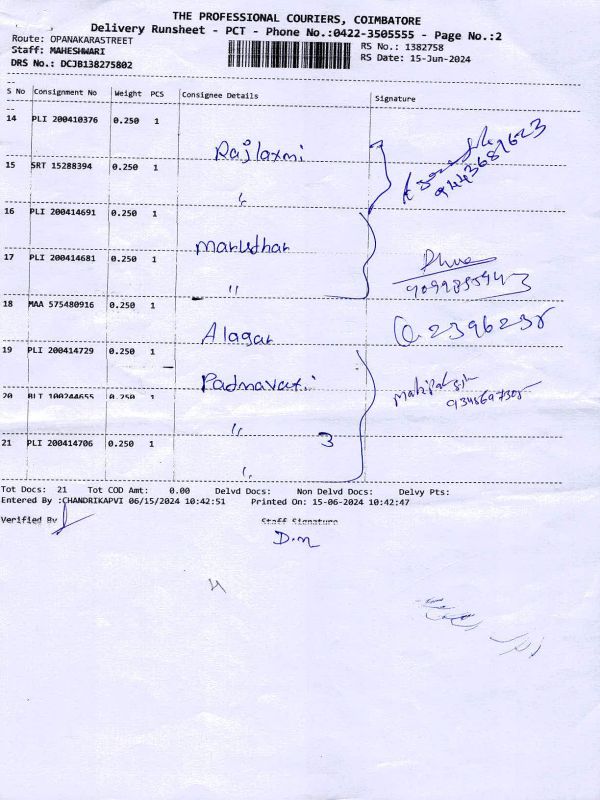 THE PROFESSIONAL COURIERS, COIMBATORE
Delivery Runsheet - PCT - Phone No.:0422-3505555 - Page No.:2
Route: OPANAKARASTREET
RS No.: 1382758
Staff: MAHESHWARI
RS Date: 15-Jun-2024
DRS No.: DCJB138275802
S No Consignment No Weight PCS Consignee Details Signature
14 PLI 200410376 0.250 1
Rajlaxmi
15 SRT 15288394 0.250 1
"
16 PLI 200414691 0.250 1
Marudhar
17 PLI 200414681 0.250 1
"
18 MAA 575480916 0.250 1
Alagar
19 PLI 200414729 0.250 1
Padmavati
20 BLT 100244655 0.250 1
" 3
21 PLI 200414706 0.250 1
"
Tot Docs: 21 Tot COD Amt: 0.00 Delvd Docs: Non Delvd Docs: Delvy Pts:
Entered By :CHANDRIKAPVI 06/15/2024 10:42:51 Printed On: 15-06-2024 10:42:47
Verified By Staff Signature
D.M